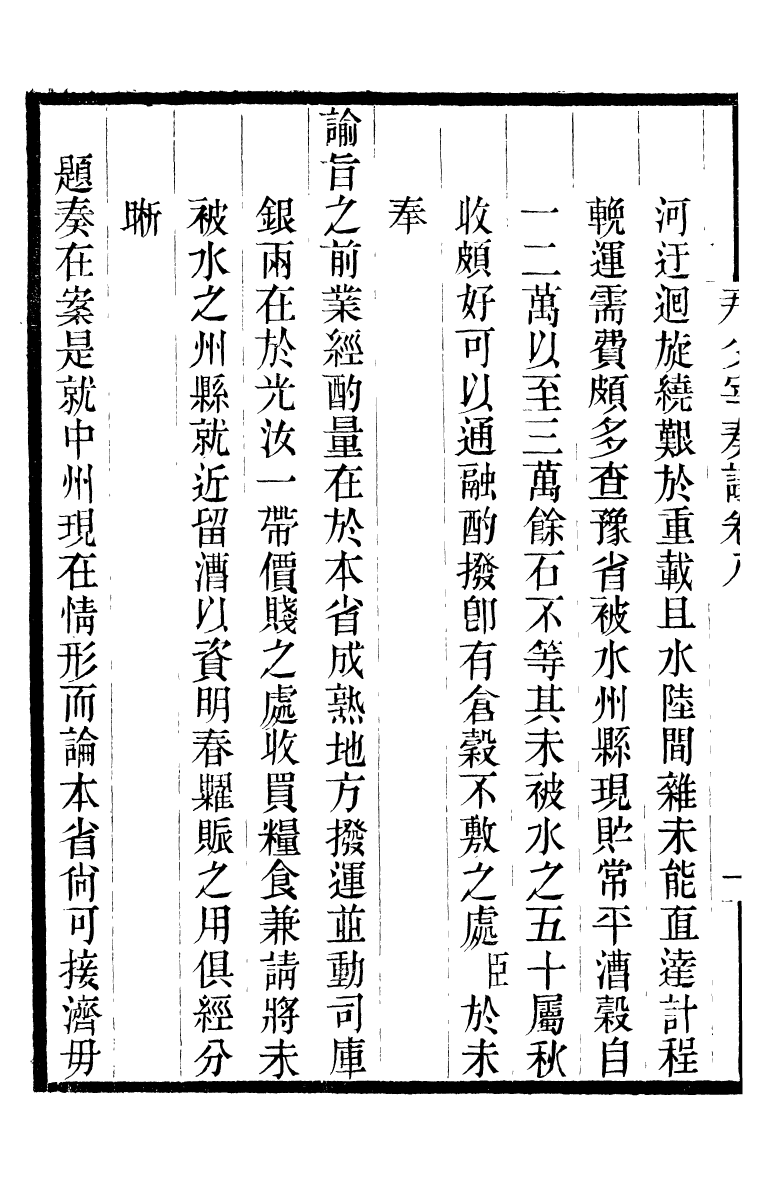 河迂迴旋繞艱於重載且水陸間雜未能直達計程
輓運需費頗多查豫省被水州縣現貯常平漕穀自
一二萬以至三萬餘石不等其未被水之五十屬秋
收頗好可以通融酌撥卽有倉穀不敷之處臣於未
奉
諭旨之前業經酌量在於本省成熟地方撥運並動司庫
銀兩在於光汝一帶價賤之處收買糧食兼請將未
被水之州縣就近留漕以資明春糶賑之用俱經分
晰
題奏在案是就中州現在情形而論本省尙可接濟毋